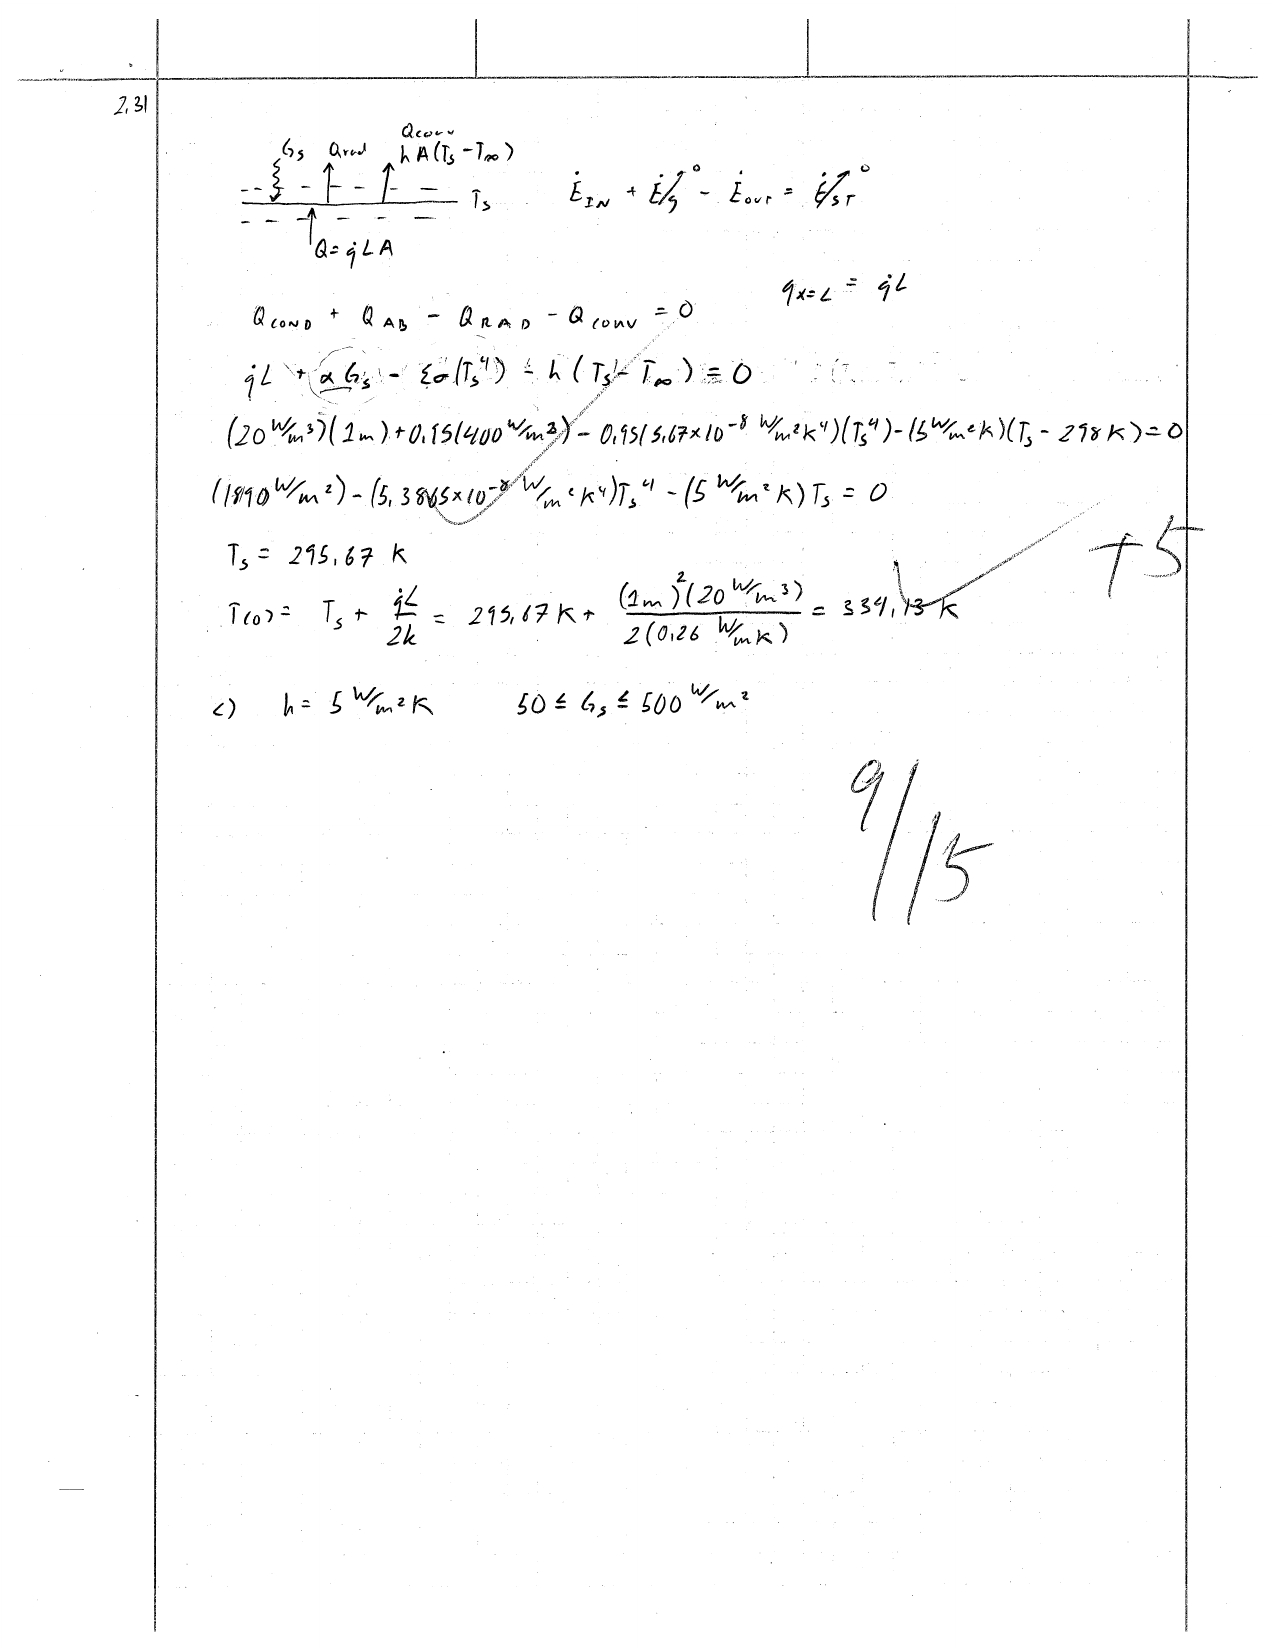 2.31
Qconv
Gs Qrad hA(Ts-T∞)
Ts
Q=q̇LA
Ė_IN + Ė_g⁰ - Ė_OUT = Ė_ST⁰
q_x=L = q̇L
Q_COND + Q_AB - Q_RAD - Q_CONV = 0
q̇L + αGs - εσ(Ts⁴) - h(Ts - T∞) = 0
(20 W/m³)(1m)+0.95(400 W/m²) - 0.95(5.67×10⁻⁸ W/m²K⁴)(Ts⁴)-(5 W/m²K)(Ts - 298K)=0
(1890 W/m²) - (5.3865×10⁻⁸ W/m²K⁴)Ts⁴ - (5 W/m²K)Ts = 0
Ts = 295.67 K
+5
T(0) = Ts + q̇L/2k = 295.67K + (1m)²(20 W/m³)/2(0.26 W/mK) = 334.13 K
c) h= 5 W/m²K 50 ≤ Gs ≤ 500 W/m²
9/15